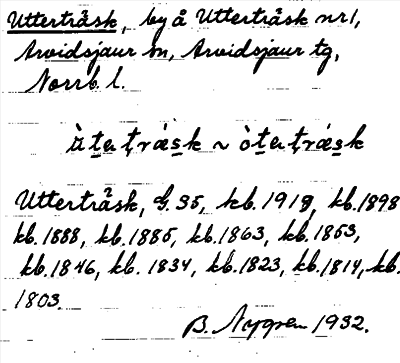 Utterträsk, by å Utterträsk nr 1,
Arvidsjaur sn, Arvidsjaur tg,
Norrb. l.
ùte̲rtrǽsk ~ òte̲rtrǽsk
Utterträsk, G. 35, kb. 1918, kb. 1898
kb. 1888, kb. 1885, kb. 1863, kb. 1853,
kb. 1846, kb. 1834, kb. 1823, kb. 1814, kb.
1803.
B. Nygren 1932.